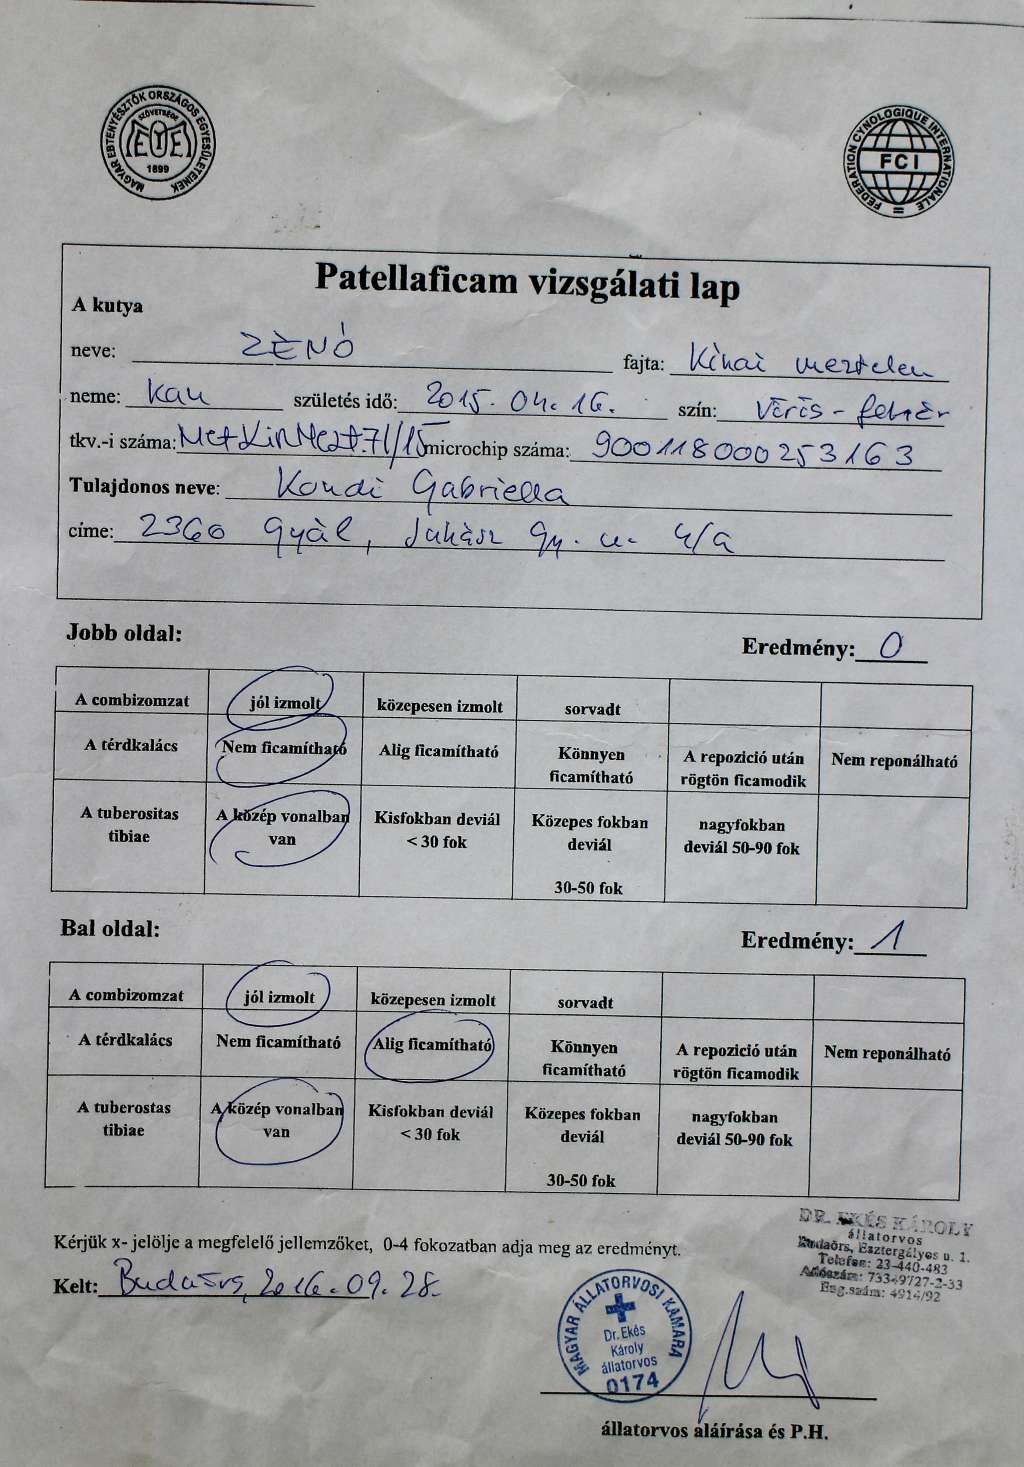 MAGYAR EBTENYÉSZTŐK ORSZÁGOS EGYESÜLETEINEK
SZÖVETSÉGE
MEOE
1899
FEDERATION CYNOLOGIQUE INTERNATIONALE
FCI
Patellaficam vizsgálati lap
A kutya
neve: ZÉNÓ fajta: Kínai meztelen
neme: kan születés idő: 2015. 04. 16. szín: vörös - fehér
tkv.-i száma: MetKinMezt.71/15 microchip száma: 900118000253163
Tulajdonos neve: Kondi Gabriella
címe: 2360 Gyál, Juhász Gy. u. 4/a
Jobb oldal:
Eredmény: 0
A combizomzat jól izmolt közepesen izmolt sorvadt
A térdkalács Nem ficamítható Alig ficamítható Könnyen ficamítható A repozició után rögtön ficamodik Nem reponálható
A tuberositas tibiae A közép vonalban van Kisfokban deviál < 30 fok Közepes fokban deviál 30-50 fok nagyfokban deviál 50-90 fok
Bal oldal:
Eredmény: 1
A combizomzat jól izmolt közepesen izmolt sorvadt
A térdkalács Nem ficamítható Alig ficamítható Könnyen ficamítható A repozició után rögtön ficamodik Nem reponálható
A tuberostas tibiae A közép vonalban van Kisfokban deviál < 30 fok Közepes fokban deviál 30-50 fok nagyfokban deviál 50-90 fok
Kérjük x- jelölje a megfelelő jellemzőket, 0-4 fokozatban adja meg az eredményt.
Kelt: Budaörs, 2016. 09. 28.
DR. EKÉS KÁROLY
állatorvos
Budaörs, Esztergályos u. 1.
Telefon: 23-440-483
Adószám: 73349727-2-33
Eng.szám: 4914/92
MAGYAR ÁLLATORVOSI KAMARA
Dr. Ekés
Károly
állatorvos
0174
állatorvos aláírása és P.H.